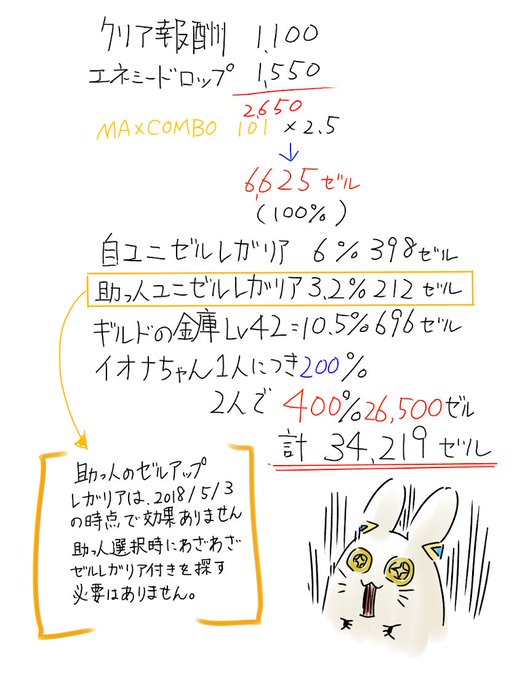 クリア報酬 1,100
エネミードロップ 1,550
2,650
MAXCOMBO 101 ×2.5
↓
6,625ゼル
(100%)
自ユニゼルレガリア 6% 398ゼル
助っ人ユニゼルレガリア 3.2% 212 ゼル
ギルドの金庫Lv42=10.5% 696ゼル
イオナちゃん1人につき200%
2人で 400% 26,500ゼル
計 34,219ゼル
助っ人のゼルアップ
レガリアは、2018/5/3
の時点で効果ありません
助っ人選択時にわざわざ
ゼルレガリア付きを探す
必要はありません。